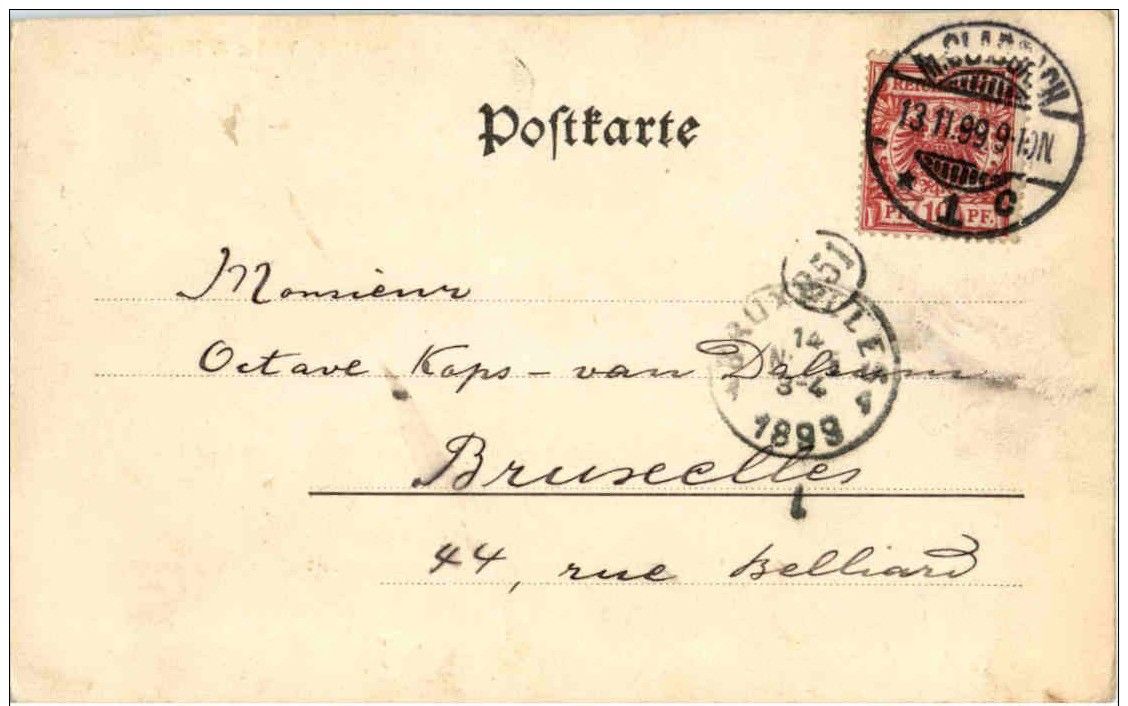 Postkarte
M. GLADBACH
13.11.99. 9-10N
* 1 c
PF. 10 PF.
Monsieur
251
BRUXELLES
Octave Kops - van Dalsum
14
3-4
1899
Bruxelles
1
44, rue Belliard